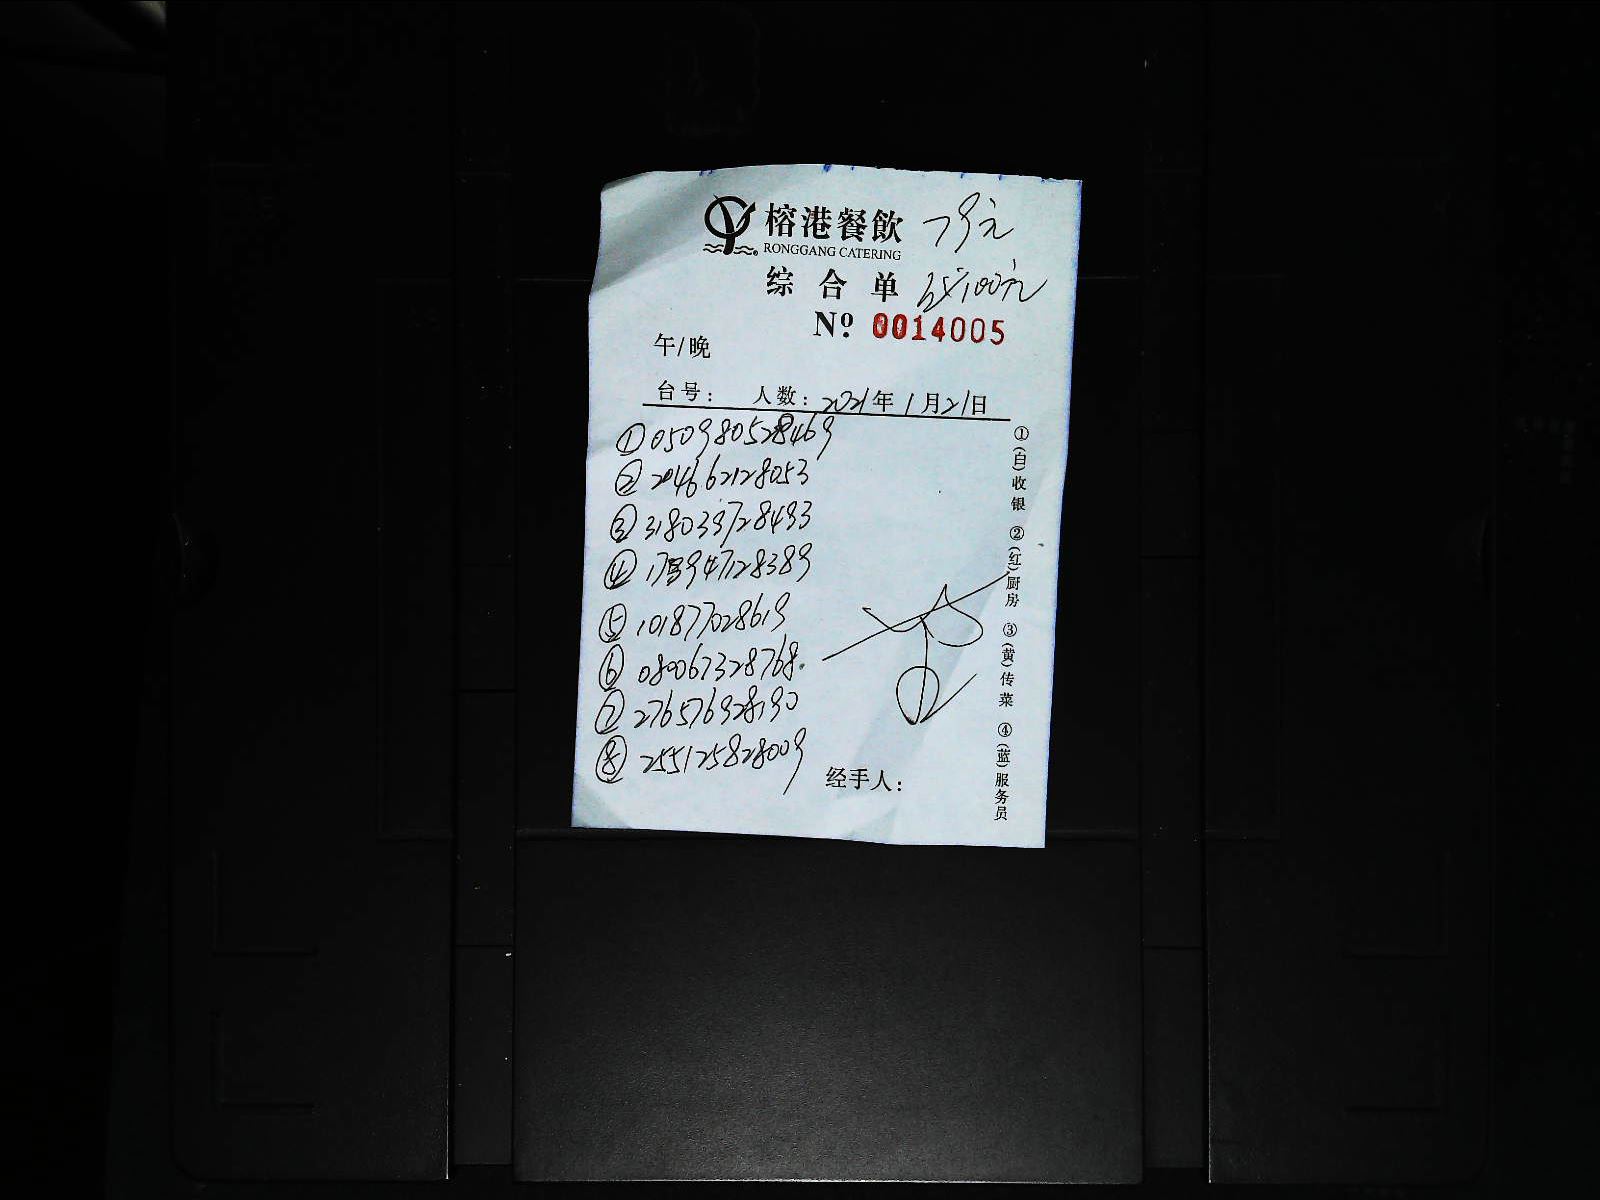 榕港餐飲 79元
RONGGANG CATERING
综合单 100元
№ 0014005
午/晚
台号: 人数: 2021年1月21日
① 050980528469
② 204662128053
③ 318039728493
④ 947128389
⑤ 101877028619
⑥ 080067328768.
⑦ 276576928190
⑧ 255125828009
经手人:
①(白)收银 ②(红)厨房 ③(黄)传菜 ④(蓝)服务员